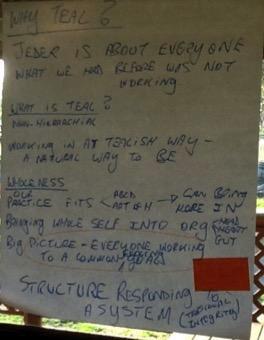 WHY TEAL?
JEDER IS ABOUT EVERYONE
WHAT WE HAD BEFORE WAS NOT
WORKING
WHAT IS TEAL?
NON-HIERARCHICAL
WORKING IN A TEALISH WAY -
A NATURAL WAY TO BE
WHOLENESS
OUR PRACTICE FITS < ABCD ART OF H > CAN BRING MORE IN
BRINGING WHOLE SELF INTO ORG HEAD HEART GUT
BIG PICTURE - EVERYONE WORKING
TO A COMMON GOAL
STRUCTURE RESPONDING TO
A SYSTEM (INTEGRITY)